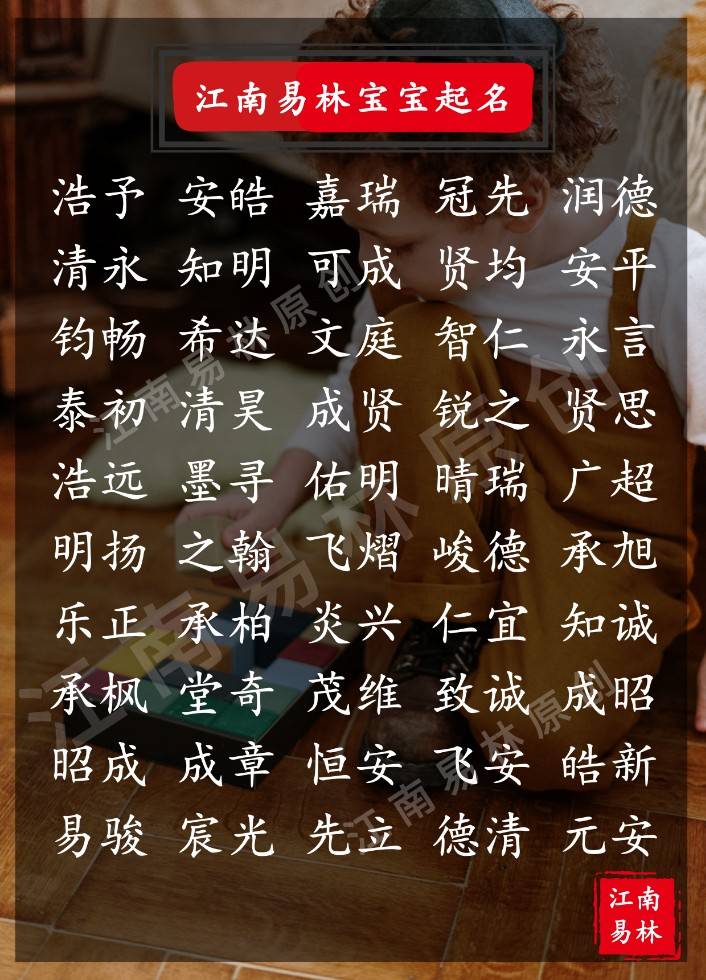 江南易林宝宝起名
浩予 安皓 嘉瑞 冠先 润德
清永 知明 可成 贤均 安平
钧畅 希达 文庭 智仁 永言
泰初 清昊 成贤 锐之 贤思
浩远 墨寻 佑明 晴瑞 广超
明扬 之翰 飞熠 峻德 承旭
乐正 承柏 炎兴 仁宜 知诚
承枫 堂奇 茂维 致诚 成昭
昭成 成章 恒安 飞安 皓新
易骏 宸光 先立 德清 元安
江南
易林
江南易林原创
江南易林原创
江南易林原创